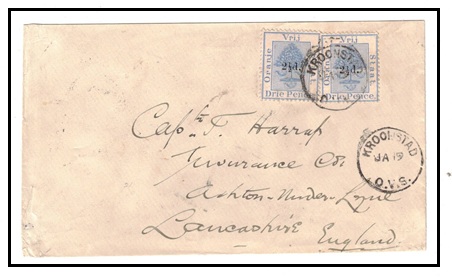 Vrij Vrij
Oranje Staat
2½d. 2½d.
Drie Pence Drie Pence
KROONSTAD
Capt. T. Harrap
Insurance Co:
KROONSTAD
JA 19
O.V.S.
Ashton-Under-Lyne
Lancashire
England